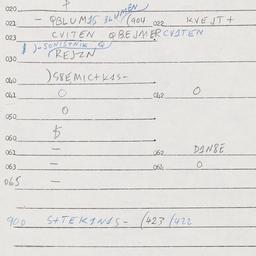 020 †
021 - QBLUM15 BLUMEN (904 022 KVEJT+
023 CVITEN QBEJMERCVITEN
)-SONISTNIK Q
030 REJZN
040 )S8EMIC+K1S-
041 O 042 O
050 O
060 ђ
061 - 062 D1N8E
063 - 064 O
065 -
900 S+TEK1N1S- (423 /422